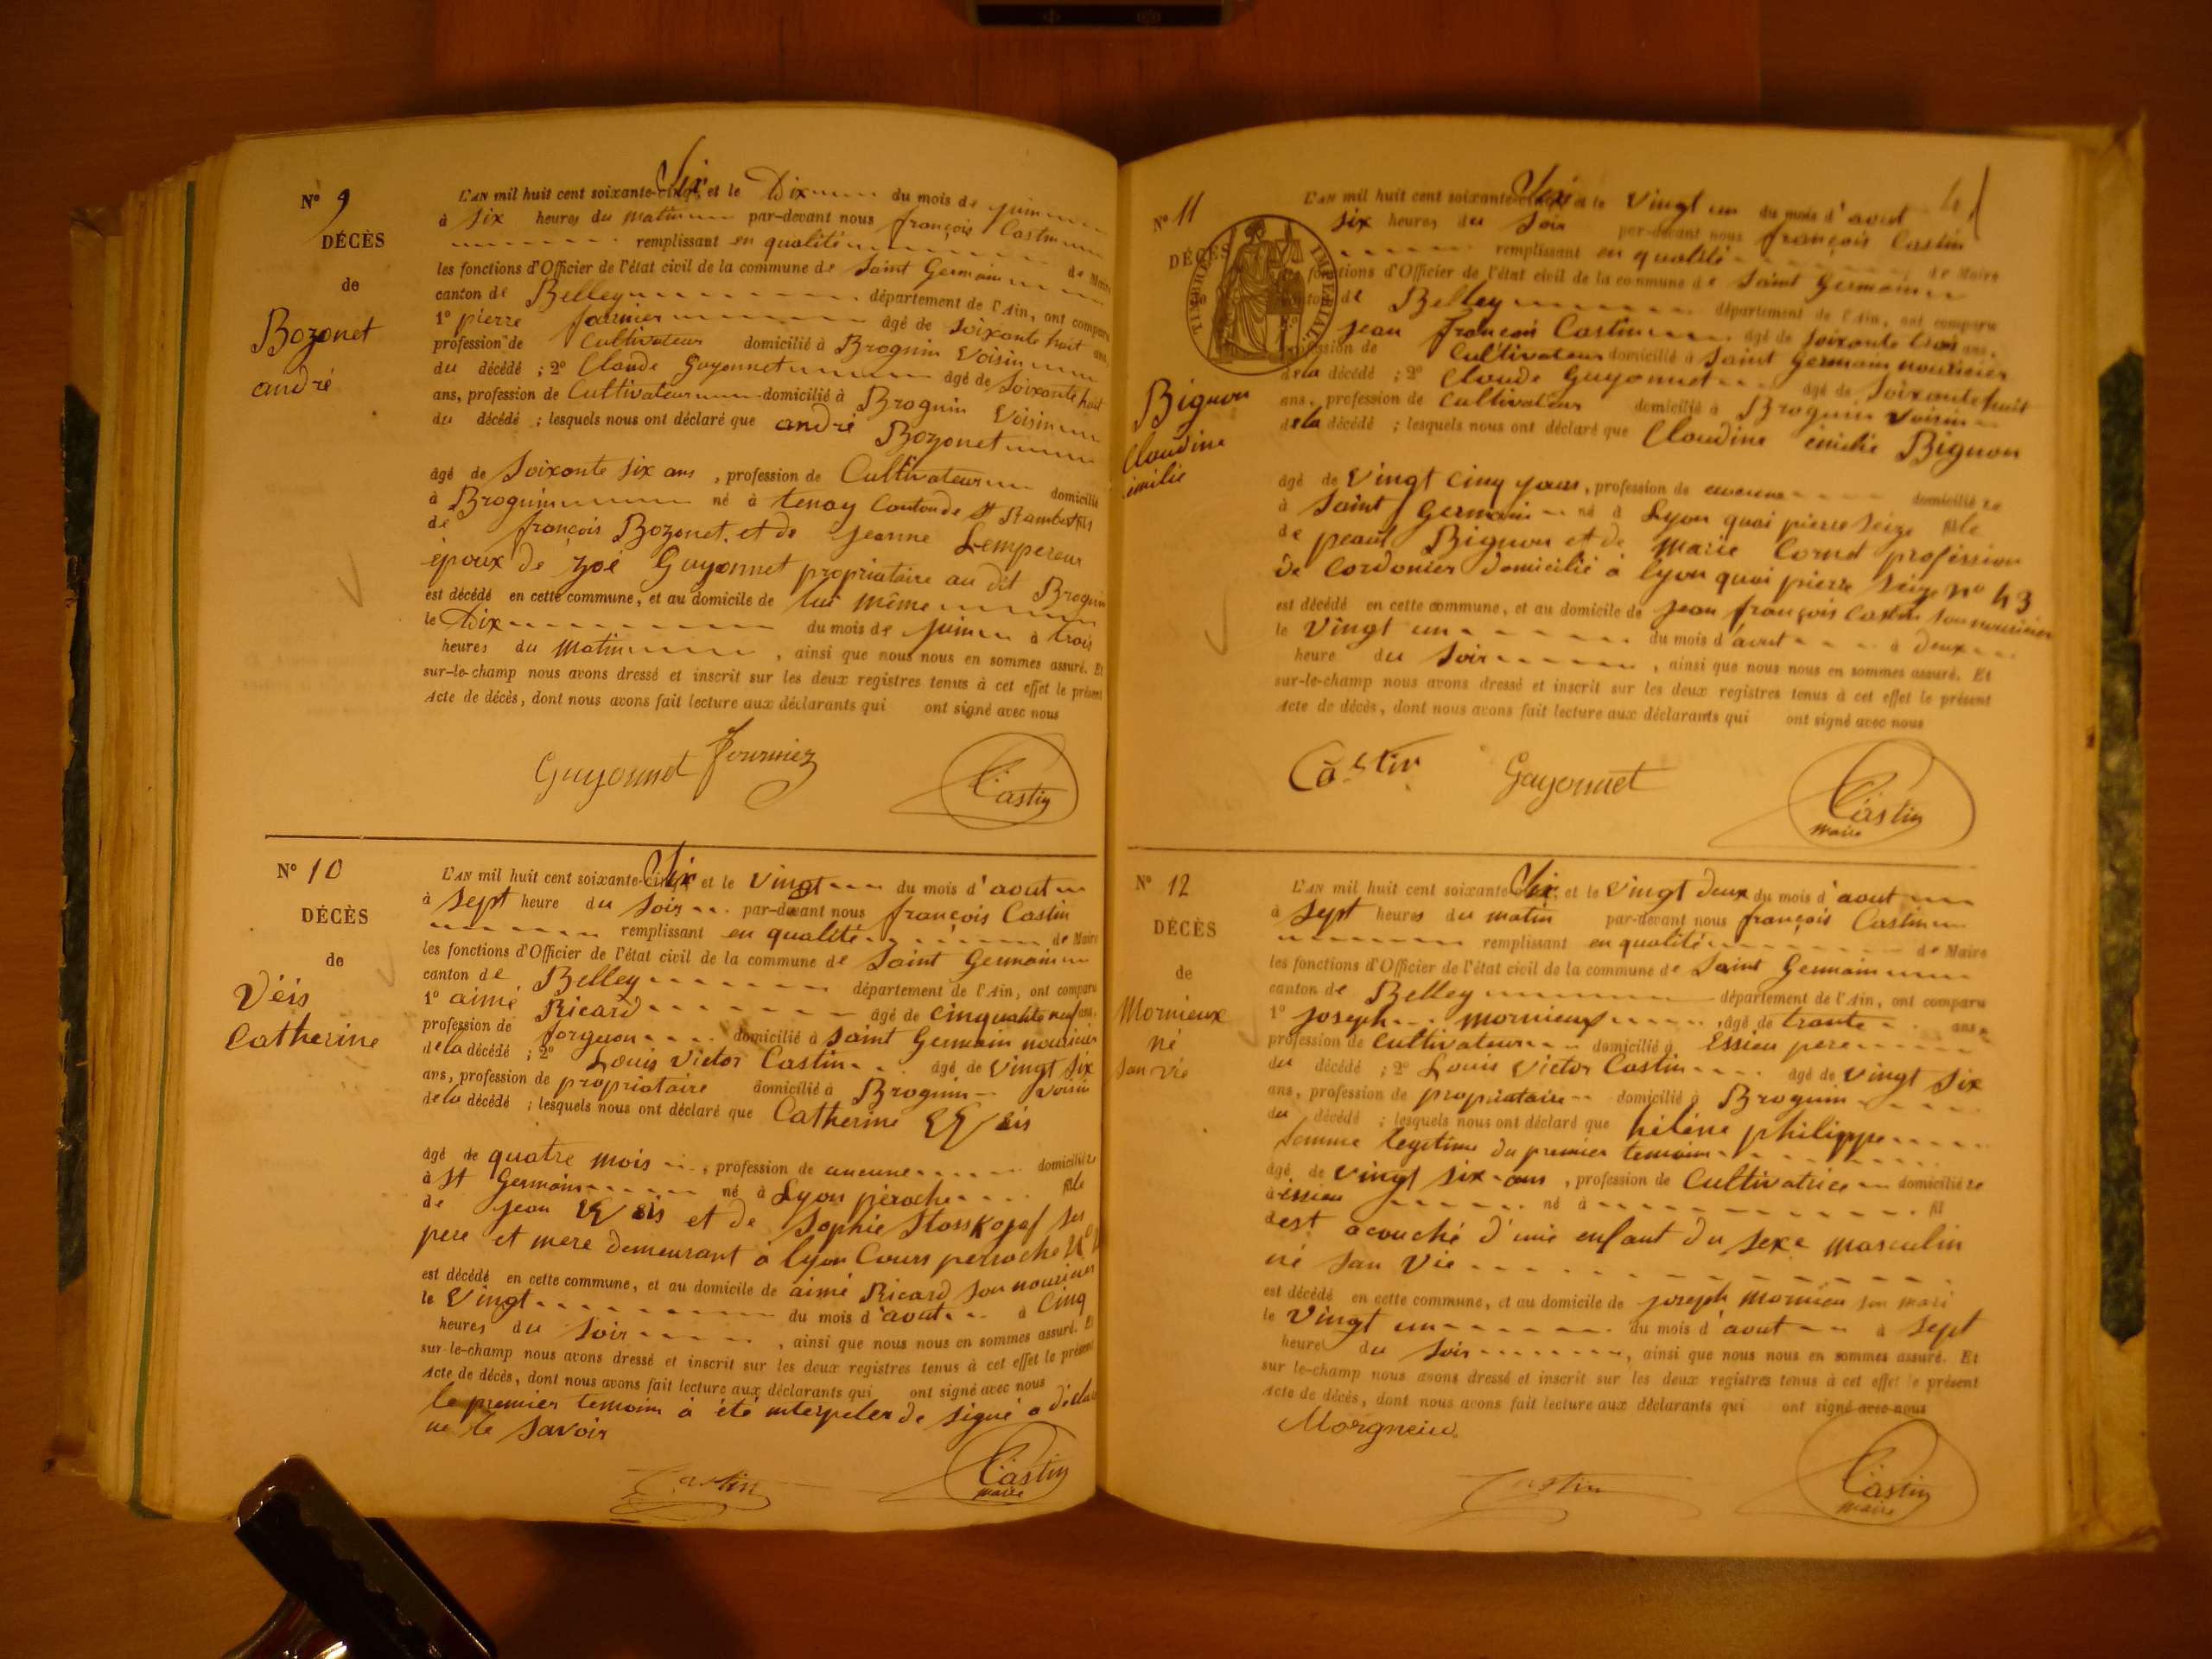 N° 9
DÉCÈS
de
Bozonet
andré
L'AN mil huit cent soixante-cinq Six et le Dix du mois de juin
à Six heures du matin par-devant nous françois Castin
remplissant en qualité de Maire
les fonctions d'Officier de l'état civil de la commune de Saint Germain
canton de Belley département de l'Ain, ont comparu
1° pierre fournier âgé de Soixante huit ans
profession de Cultivateur domicilié à Brognin Voisin
du décédé ; 2° Claude Guyonnet âgé de Soixante huit
ans, profession de Cultivateur domicilié à Brognin Voisin
du décédé ; lesquels nous ont déclaré que andré Bozonet
âgé de Soixante Six ans , profession de Cultivateur domicilié
à Brognin né à tenay Canton de St Rambert fils
de françois Bozonet et de Jeanne Lempereur
époux de zoé Guyonnet propriataire au dit Brognin
est décédé en cette commune, et au domicile de lui même
le Dix du mois de juin à trois
heures du matin , ainsi que nous nous en sommes assuré. Et
sur-le-champ nous avons dressé et inscrit sur les deux registres tenus à cet effet le présent
Acte de décès, dont nous avons fait lecture aux déclarants qui ont signé avec nous
Guyonnet fournier Castin
N° 10
DÉCÈS
de
Veis
Catherine
L'AN mil huit cent soixante-cinq Six et le Vingt du mois d'aout
à Sept heure du Soir par-devant nous françois Castin
remplissant en qualité de Maire
les fonctions d'Officier de l'état civil de la commune de Saint Germain
canton de Belley département de l'Ain, ont comparu
1° aimé Ricard âgé de cinquante neuf ans.
profession de forgeron domicilié à Saint Germain nouricier
de la décédé ; 2° Louis Victor Castin âgé de Vingt Six
ans, profession de propriataire domicilié à Brognin Voisin
de la décédé ; lesquels nous ont déclaré que Catherine Weis
âgé de quatre mois , profession de aucune domiciliée
à St Germain né à Lyon péroche fille
de Jean Weis et de Sophie Stosskopf Ses
pere et mere demeurant à lyon Cours perroche
est décédé en cette commune, et au domicile de aimé Ricard Son nouricier
le Vingt du mois d'aout à Cinq
heures du Soir , ainsi que nous nous en sommes assuré. Et
sur-le-champ nous avons dressé et inscrit sur les deux registres tenus à cet effet le présent
Acte de décès, dont nous avons fait lecture aux déclarants qui ont signé avec nous
le premier temoin à été interpeler de signé a déclar
ne le Savoir
Castin Castin
maire
41
N° 11
DÉCÈS
TIMBRE IMPERIAL
Bignon
Claudine
émilie
L'AN mil huit cent soixante-cinq Six et le Vingt un du mois d'aout
Six heures du Soir par-devant nous françois Castin
remplissant en qualité de Maire
fonctions d'Officier de l'état civil de la commune de Saint Germain
canton de Belley département de l'Ain, ont comparu
jean françois Castin âgé de Soixante trois ans.
profession de Cultivateur domicilié à Saint Germain nouricier
de la décédé ; 2° Claude Guyonnet âgé de Soixante huit
ans, profession de Cultivateur domicilié à Brognin Voisin
de la décédé ; lesquels nous ont déclaré que Claudine émilie Bignon
âgé de Vingt Cinq jours, profession de aucune domiciliée
à Saint Germain né à Lyon quai pierre Seize fille
de Bignon et de Marie Cornet profession
de Cordonier domicilié à lyon quai pierre Seize n° 43
est décédé en cette commune, et au domicile de jean françois Castin Son nouricier
le Vingt un du mois d'aout à deux
heure du Soir , ainsi que nous nous en sommes assuré. Et
sur-le-champ nous avons dressé et inscrit sur les deux registres tenus à cet effet le présent
Acte de décès, dont nous avons fait lecture aux déclarants qui ont signé avec nous
Castin Guyonnet Castin
maire
N° 12
DÉCÈS
de
Mornieux
né
San vie
L'AN mil huit cent soixante Six et le Vingt deux du mois d'aout
à Sept heures du matin par-devant nous françois Castin
remplissant en qualité de Maire
les fonctions d'Officier de l'état civil de la commune de Saint Germain
canton de Belley département de l'Ain, ont comparu
1° joseph mornieux , âgé de trante ans
profession de Cultivateur domicilié à Essieu pere
du décédé ; 2° Louis Victor Castin âgé de Vingt Six
ans, profession de propriataire domicilié à Brognin
du décédé ; lesquels nous ont déclaré que héléne philippe
femme legitime du premier temoin
âgé de Vingt Six ans , profession de Cultivatrice domiciliée
à éssieu né à fil
dest acouché d'une enfant du Sexe masculin
né San Vie
est décédé en cette commune, et au domicile de joseph mornieu son mari
le Vingt un du mois d'aout à Sept
heure du Soir , ainsi que nous nous en sommes assuré. Et
sur le-champ nous avons dressé et inscrit sur les deux registres tenus à cet effet le présent
Acte de décès, dont nous avons fait lecture aux déclarants qui ont signé avec nous
Morgneiu
Castin Castin
maire